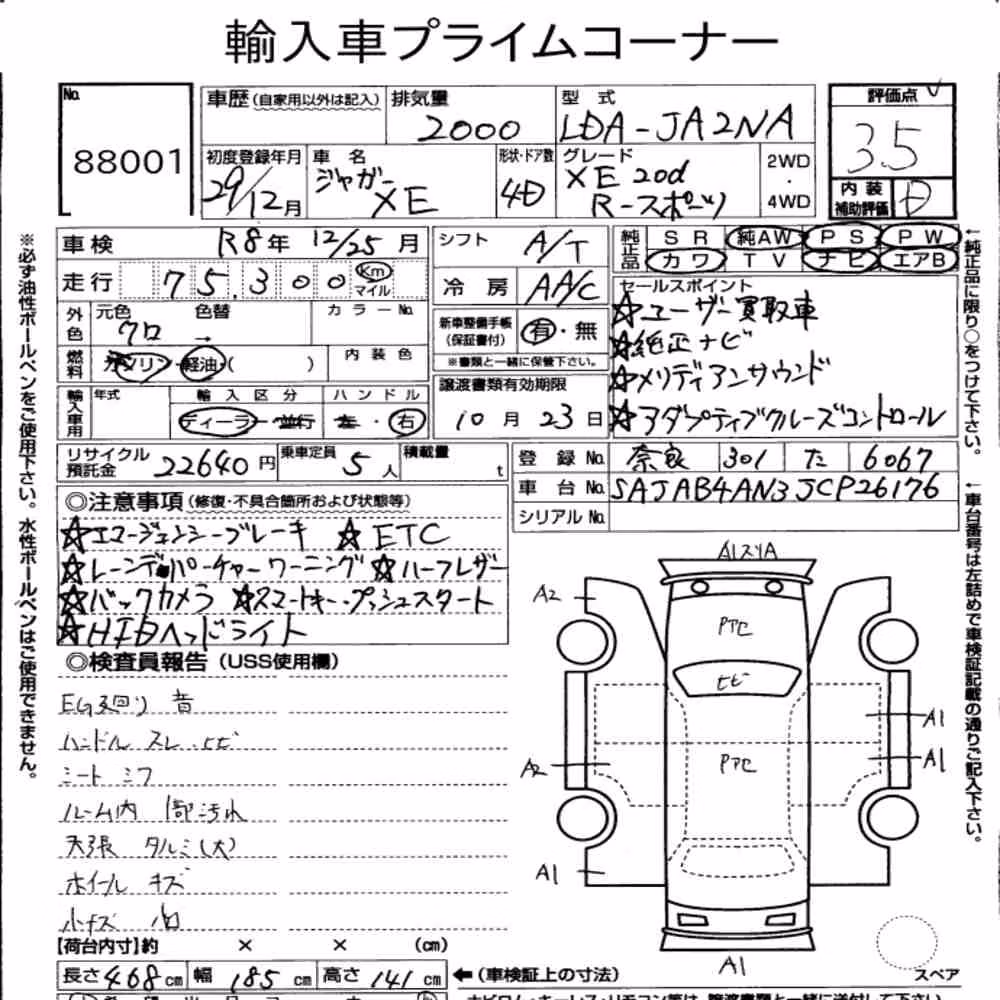 輸入車プライムコーナー
No.
88001
車歴(自家用以外は記入)
排気量
2000
型 式
LDA-JA2NA
評価点
3.5
初度登録年月
29/12月
車 名
ジャガー
XE
形状・ドア数
4D
グレード
XE 20d
R-スポーツ
2WD
・
4WD
内 装
補助評価
D
車検
R8年 12/25月
シフト
A/T
純正品
SR 純AW PS PW
カワ TV ナビ エアB
走行
75.300
Km
マイル
冷 房
AA/C
セールスポイント
☆ユーザー買取車
☆純正ナビ
☆メリディアンサウンド
☆アダプティブクルーズコントロール
外色
元色
クロ
色替
→
カラーNo.
新車整備手帳
(保証書付)
有・無
※書類と一緒に保管下さい。
燃料
ガソリン・軽油・( )
内 装 色
譲渡書類有効期限
10月23日
輸入車用
年式
輸 入 区 分
ディーラー・並行
ハ ン ド ル
左・右
リサイクル
預託金
22640円
乗車定員
5人
積載量
t
登 録 No.
奈良 301 た 6067
車 台 No.
SAJAB4AN3JCP26176
シリアルNo.
◎注意事項(修復・不具合箇所および状態等)
☆エマージェンシーブレーキ ☆ETC
☆レーンデパーチャーワーニング ☆ハーフレザー
☆バックカメラ ☆スマートキー・プッシュスタート
☆HIDヘッドライト
◎検査員報告(USS使用欄)
EG廻り 音
ハンドル スレ、ヒビ
シート シワ
ルーム内 1部汚れ
天張 タルミ(大)
ホイール キズ
小キズ 凹
【荷台内寸】約 × × (cm)
長さ468cm 幅185cm 高さ141cm
←(車検証上の寸法)
スペア
A1スリA
A2
PTC
ヒビ
A1
A2
PTC
A1
A1
A1
※必ず油性ボールペンをご使用下さい。水性ボールペンはご使用できません。
←純正品に限り○をつけて下さい。
←車台番号は左詰めで車検証記載の通りご記入下さい。